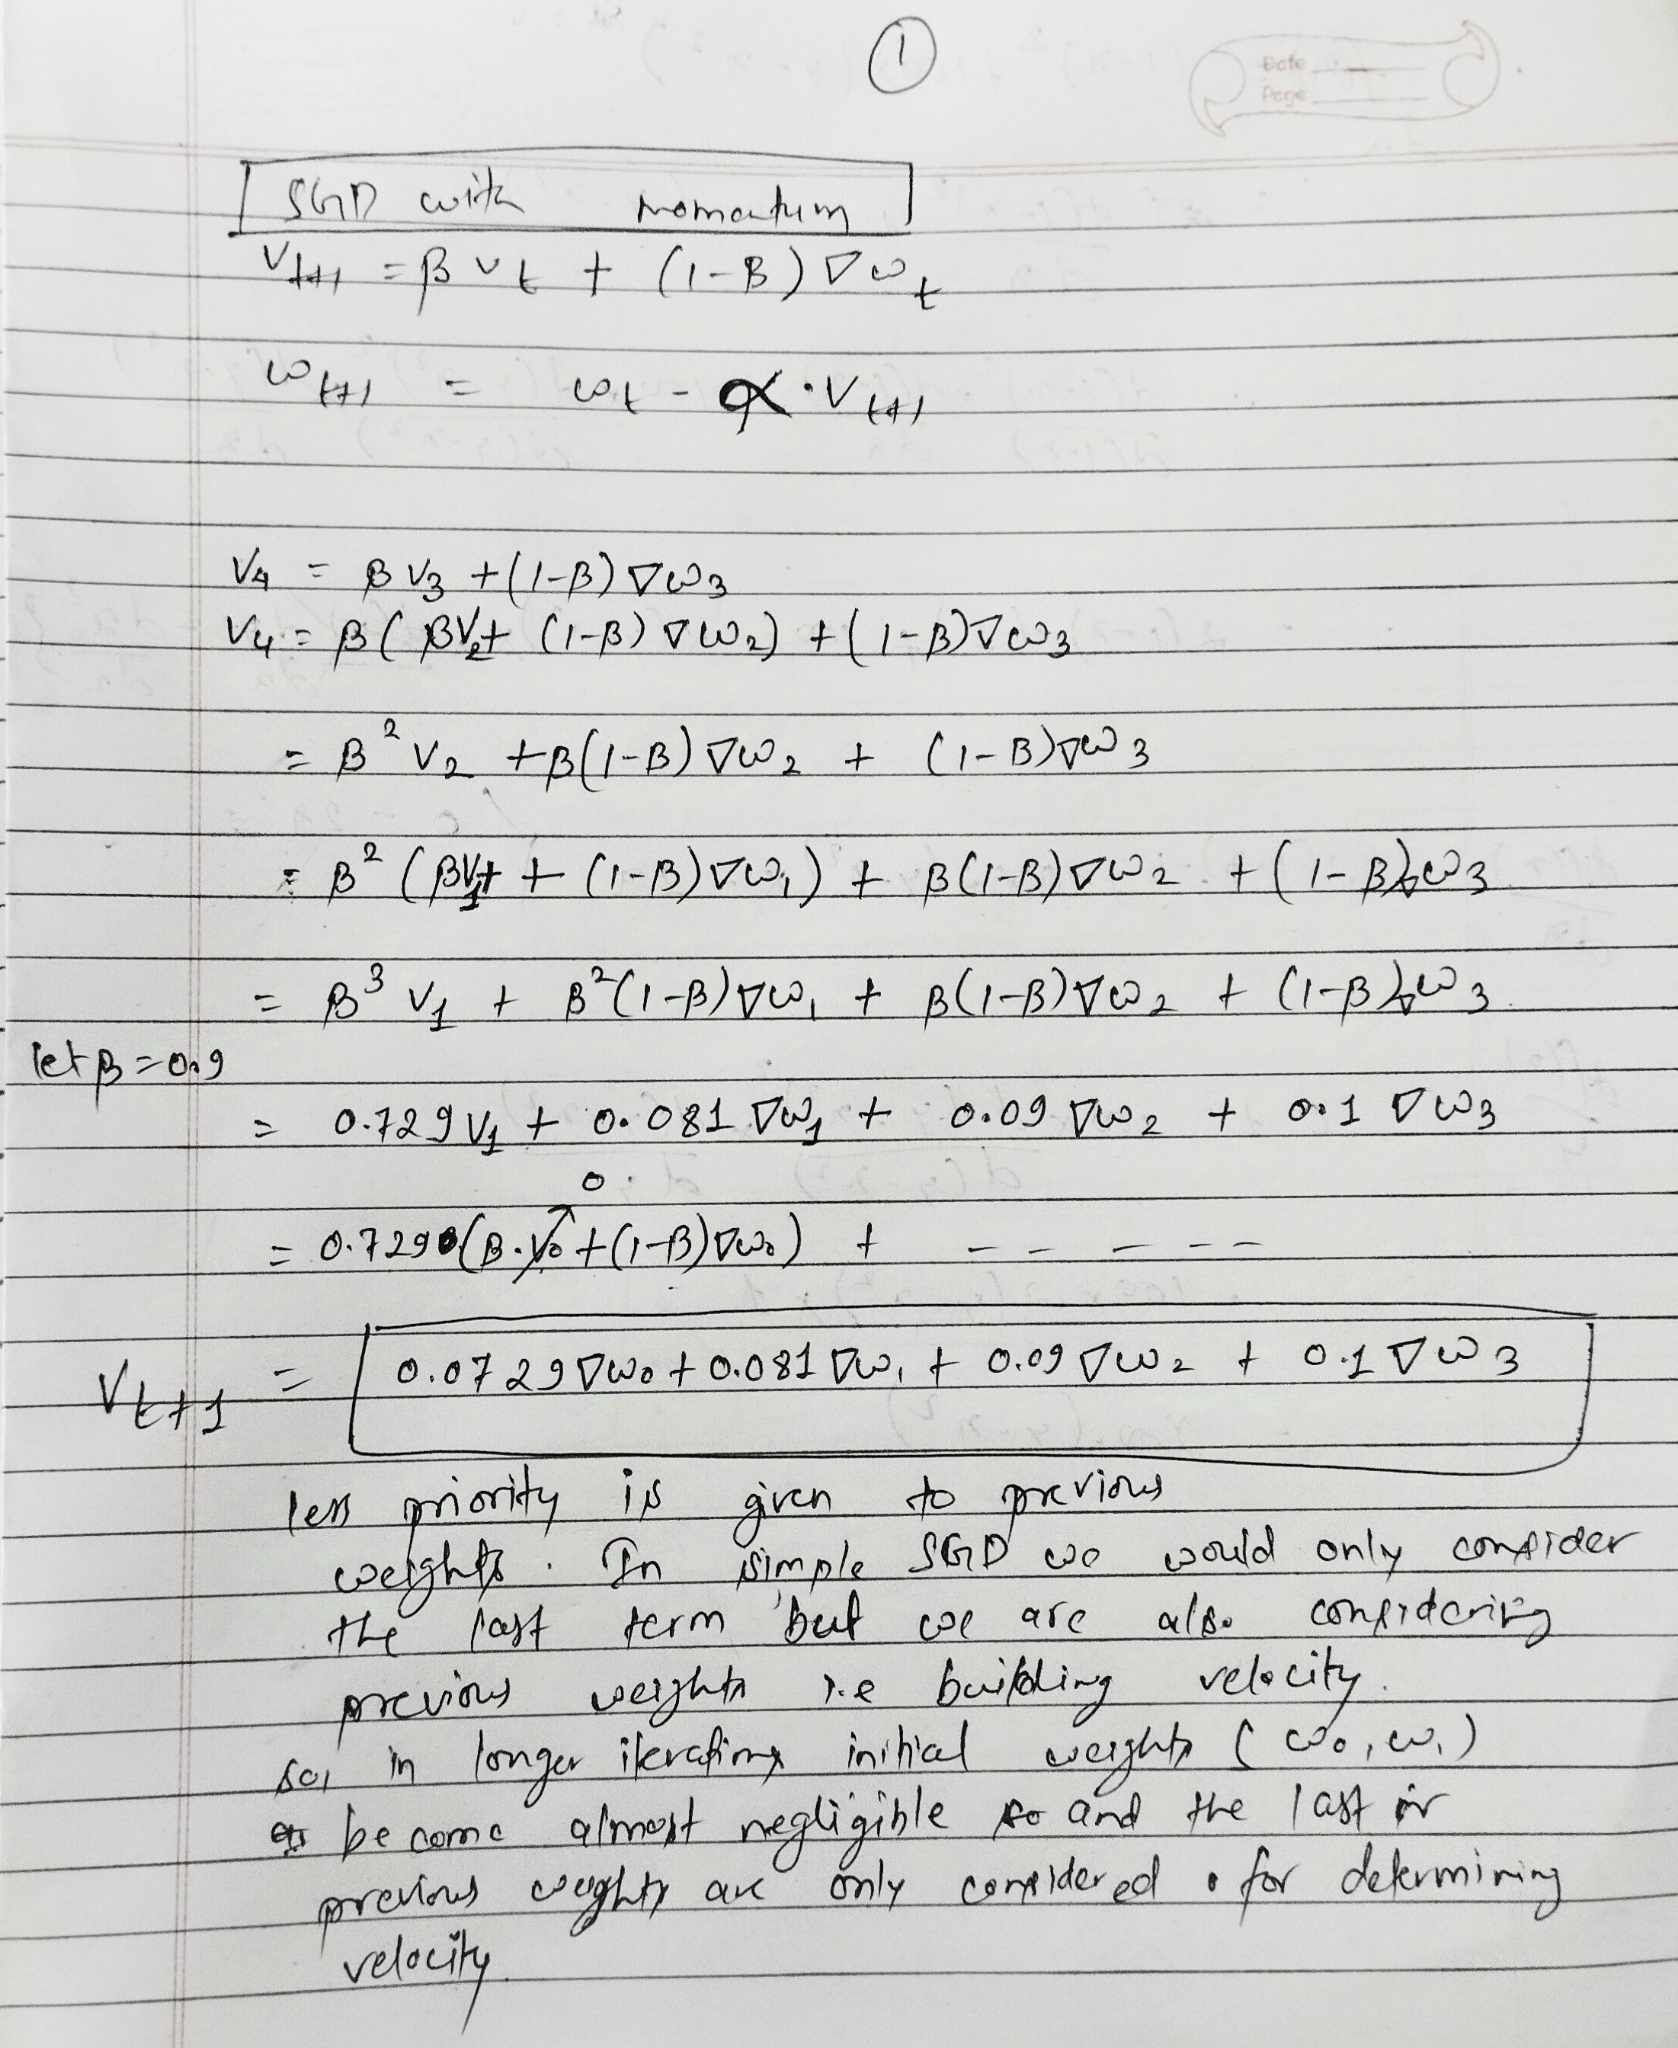 ①
Date
Page
SGD with momentum
V_{t+1} = β v_t + (1-β) ∇w_t
w_{t+1} = w_t - α · V_{t+1}
V_4 = β V_3 + (1-β) ∇w_3
V_4 = β ( βV_2 + (1-β) ∇w_2) + (1-β)∇w_3
= β² V_2 + β(1-β) ∇w_2 + (1-β)∇w_3
= β² (βV_1 + (1-β)∇w_1) + β(1-β)∇w_2 + (1-β)∇w_3
= β³ V_1 + β²(1-β)∇w_1 + β(1-β)∇w_2 + (1-β)∇w_3
let β = 0.9
= 0.729 V_1 + 0.081 ∇w_1 + 0.09 ∇w_2 + 0.1 ∇w_3
0
= 0.729(β·V_0 + (1-β)∇w_0) + - - - - -
V_{t+1} = 0.0729∇w_0 + 0.081 ∇w_1 + 0.09 ∇w_2 + 0.1 ∇w_3
less priority is given to previous
weights. In simple SGD we would only consider
the last term but we are also considering
previous weights i.e building velocity.
so, in longer iterations initial weights (w_0, w_1)
become almost negligible and the last or
previous weights are only considered for determining
velocity.